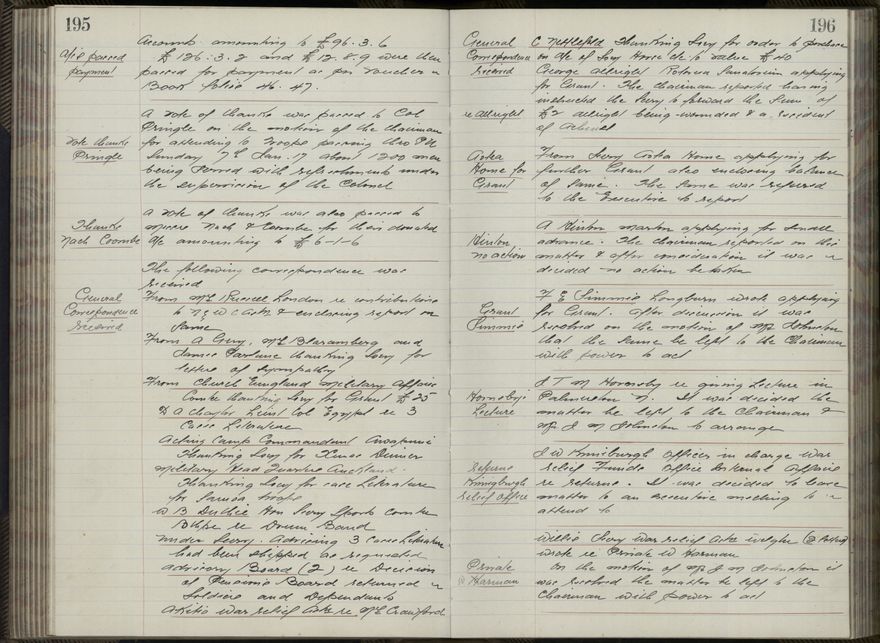 195
Accounts amounting to £96.3.6
£126.3.2 and £12.8.9 were then
passed for payment as per Voucher
Book folio 46. 47.
A/cs passed
payment
A vote of thanks was passed to Col
Pringle on the motion of the Chairman
for attending to troops passing thro P.N
Sunday 7th Jan. 17 about 1200 men
being served with refreshments under
the supervision of the Colonel
Vote thanks
Pringle
A vote of thanks was also passed to
Messrs Nash & Coombe for their donated
A/c amounting to £6-1-6
Thanks
Nash Coombe
The following correspondence was
received
General
Correspondence
received
From Mr Russell London re contributions
to & enclosing report on
same
From A Grey, Mrs Blaramberg and
James thanking Secy for
letter of sympathy
From Church England Military Affairs
Comte thanking Secy for Grant £25
D A Chaytor Lieut Col Egypt re 3
Cases Literature
Acting Camp Commandant Awapuni
Thanking Secy for Xmas Dinner
Military Head Quarters Auckland
Thanking Secy for case Literature
for Samoa troops
W B Duthie Hon Secy Sports Comte
re Drum Band
Under Secy. Advising 3 Cases Literature
had been shipped as requested
Advisory Board (2) re Decision
of Pensions Board returned
Soldiers and Dependents
Akitio War relief Assn re Mrs Crawford
196
General
Correspondence
received
C Nettlefold Thanking Secy for order to purchase
on A/c of Soy Horse etc to value £40
George Allright Rotorua Sanatorium applying
for Grant. The Chairman reported having
instructed the Secy to forward the sum of
£2 Allright being wounded & a resident
of
re Allright
Aotea
Home for
Grant
From Secy Aotea Home applying for
further Grant also enclosing balance
of same. The same was referred
to the Executive to report
Kinton
no action
A Kinton Marton applying for small
advance. The Chairman reported on this
matter & after consideration it was
decided no action be taken
Grant
Simmis
F E Simmis Longburn wrote applying
for Grant. After discussion it was
resolved on the motion of Mr Johnston
that the same be left to the Chairman
with power to act
Hornsby's
Lecture
J T M Hornsby re giving Lecture in
Palmerston N. It was decided the
matter be left to the Chairman &
Mr J M Johnston to arrange
Returns
Kinniburgh
relief Office
J W Kinniburgh Officer in charge War
relief Funds Office Internal Affairs
re returns. It was decided to leave
matter to an executive meeting to
attend to
Private
W Harman
Willis Secy War relief Assn Wgton
wrote re Private W Harman
On the motion of Mr J M Johnston it
was resolved the matter be left to the
Chairman with power to act